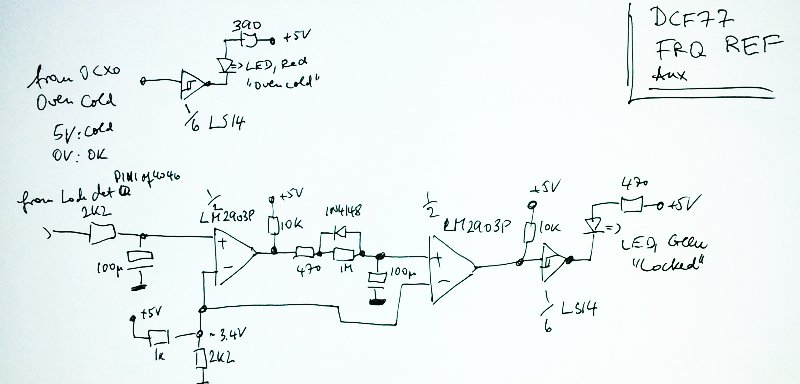 390
+5V
DCF77
FRQ REF
Aux
from OCXO
Oven Cold
5V: cold
0V: OK
LED, Red
"Oven cold"
1/6 LS14
from Lock det
PIN1 of 4046
2K2
100µ
1/2
LM2903P
+5V
10K
470
1N4148
1M
100µ
1/2
LM2903P
+5V
10K
470
+5V
LED, Green
"Locked"
1/6 LS14
+5V
1K
~3.4V
2K2